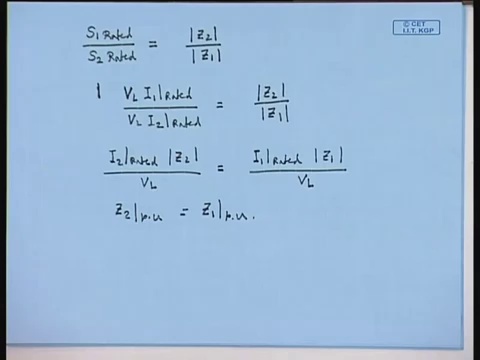 © CET
I.I.T. KGP
S₁ Rated / S₂ Rated = |Z₂| / |Z₁|
| V_L I₁|Rated / V_L I₂|Rated = |Z₂| / |Z₁|
I₂|Rated |Z₂| / V_L = I₁|Rated |Z₁| / V_L
Z₂|p.u = Z₁|p.u.